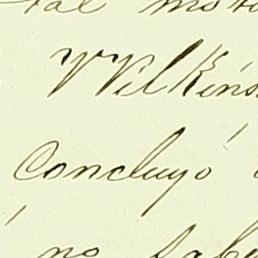 tal mo
Wilkins
Concluyó
no sabe